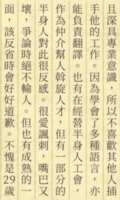 且深具專業意識，所以不喜歡其他人插
手他的工作。因為學會了多種語言，亦
能負責翻譯。也有在經營半身人工會，
作為仲介幫人斡旋人才，但有一部分的
半身人對此很反感。很愛諷刺，嘴巴又
壞，爭論時絕不輸人。但也有成熟的一
面，該反省時會好好道歉。不愧是29歲